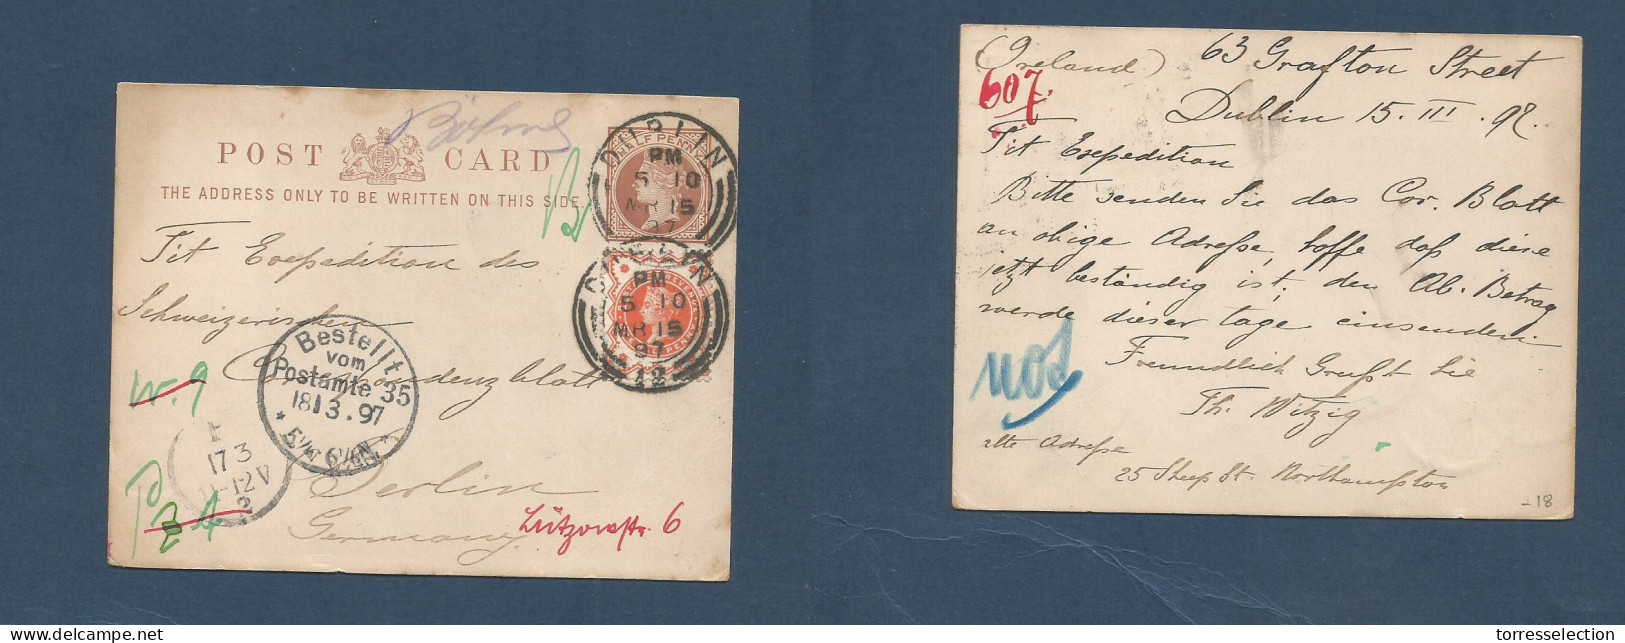 POST CARD
THE ADDRESS ONLY TO BE WRITTEN ON THIS SIDE.
HALFPENNY
DUBLIN
PM
5 10
MR 15
97
DUBLIN
PM
5 10
MR 15
97
12
Tit Expedition des
Schweizerischen
Correspondenzblatt
Berlin
Germany.
Lützowstr. 6
W. 9
Bestellt
vom
Postamte 35
18 3. 97
17 3
11-12V
2
(Ireland) 63 Grafton Street
607.
Dublin 15. III. 97.
Tit Expedition
Bitte senden Sie das Cor. Blatt
an obige Adreße, hoffe daß diese
jetzt beständig ist; den Ab. Betrag
werde dieser tage einsenden.
Freundlich Grüßt Sie
Th. Witzig
alte Adreße
25 Sheep St. Northampton
-18
torresselection
delcampe.net